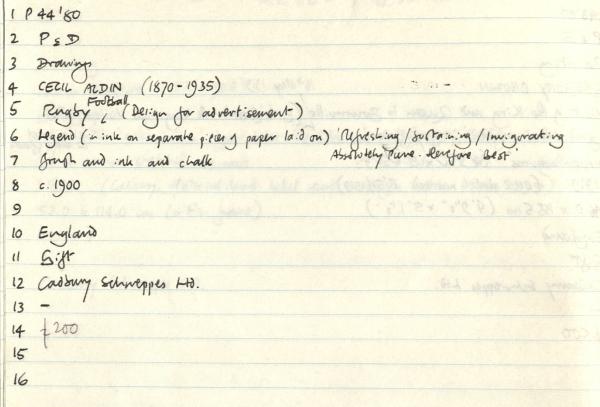 1 P 44'80
2 P & D
3 Drawings
4 CECIL ALDIN (1870-1935)
5 Rugby Football (Design for advertisement)
6 Legend (in ink on separate pieces of paper laid on) 'Refreshing / Sustaining / Invigorating
Absolutely Pure. Therefore Best
7 Brush and ink and chalk
8 c. 1900
9
10 England
11 Gift
12 Cadbury Schweppes Ltd.
13 -
14 £200
15
16